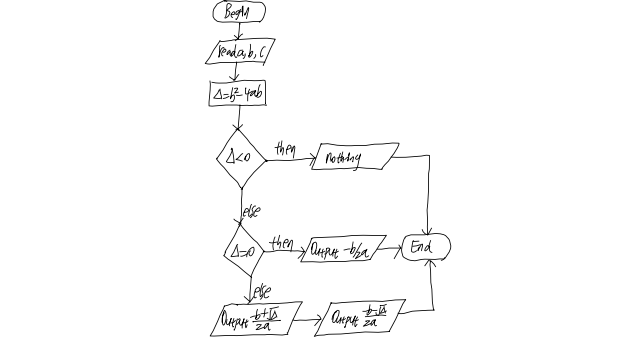 Begin
read a, b, c
Δ=b²-4ab
Δ<0
then
nothing
else
Δ=0
then
Output -b/2a
End
else
Output -b+√Δ/2a
Output -b-√Δ/2a